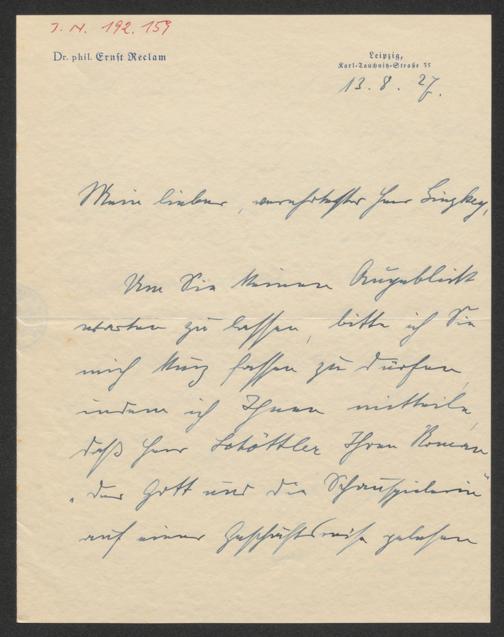 J. N. 192.159
Dr. phil. Ernst Reclam
Leipzig,
Karl-Tauchnitz-Straße 35
13. 8. 27.
Mein lieber, verehrtester Herr Ginzkey,
Um Sie keinen Augenblick
warten zu lassen, bitte ich Sie
mich kurz fassen zu dürfen,
indem ich Ihnen mitteile,
daß Herr Ihren Roman
„Der Gott und die Schauspielerin"
auf einer Geschäftsreise gelesen